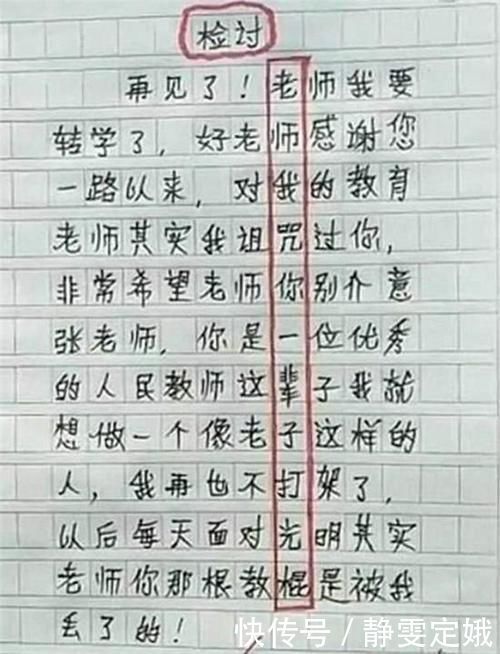 检讨
再见了！老师我要
转学了，好老师感谢您
一路以来，对我的教育
老师其实我诅咒过你，
非常希望老师你别介意
张老师，你是一位优秀
的人民教师这辈子我就
想做一个像老子这样的
人，我再也不打架了，
以后每天面对光明其实
老师你那根教棍是被我
丢了的！
快传号／静雯定娥